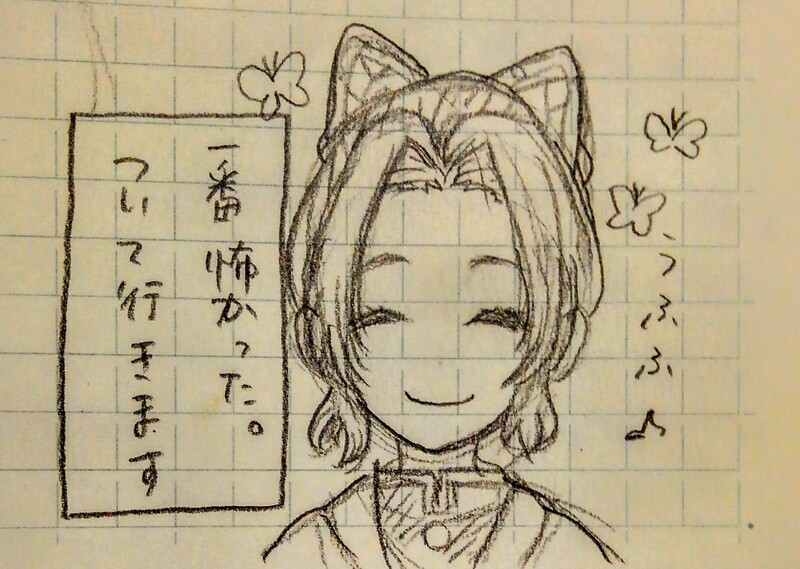 一番怖かった。
ついて行きます
うふふ♪